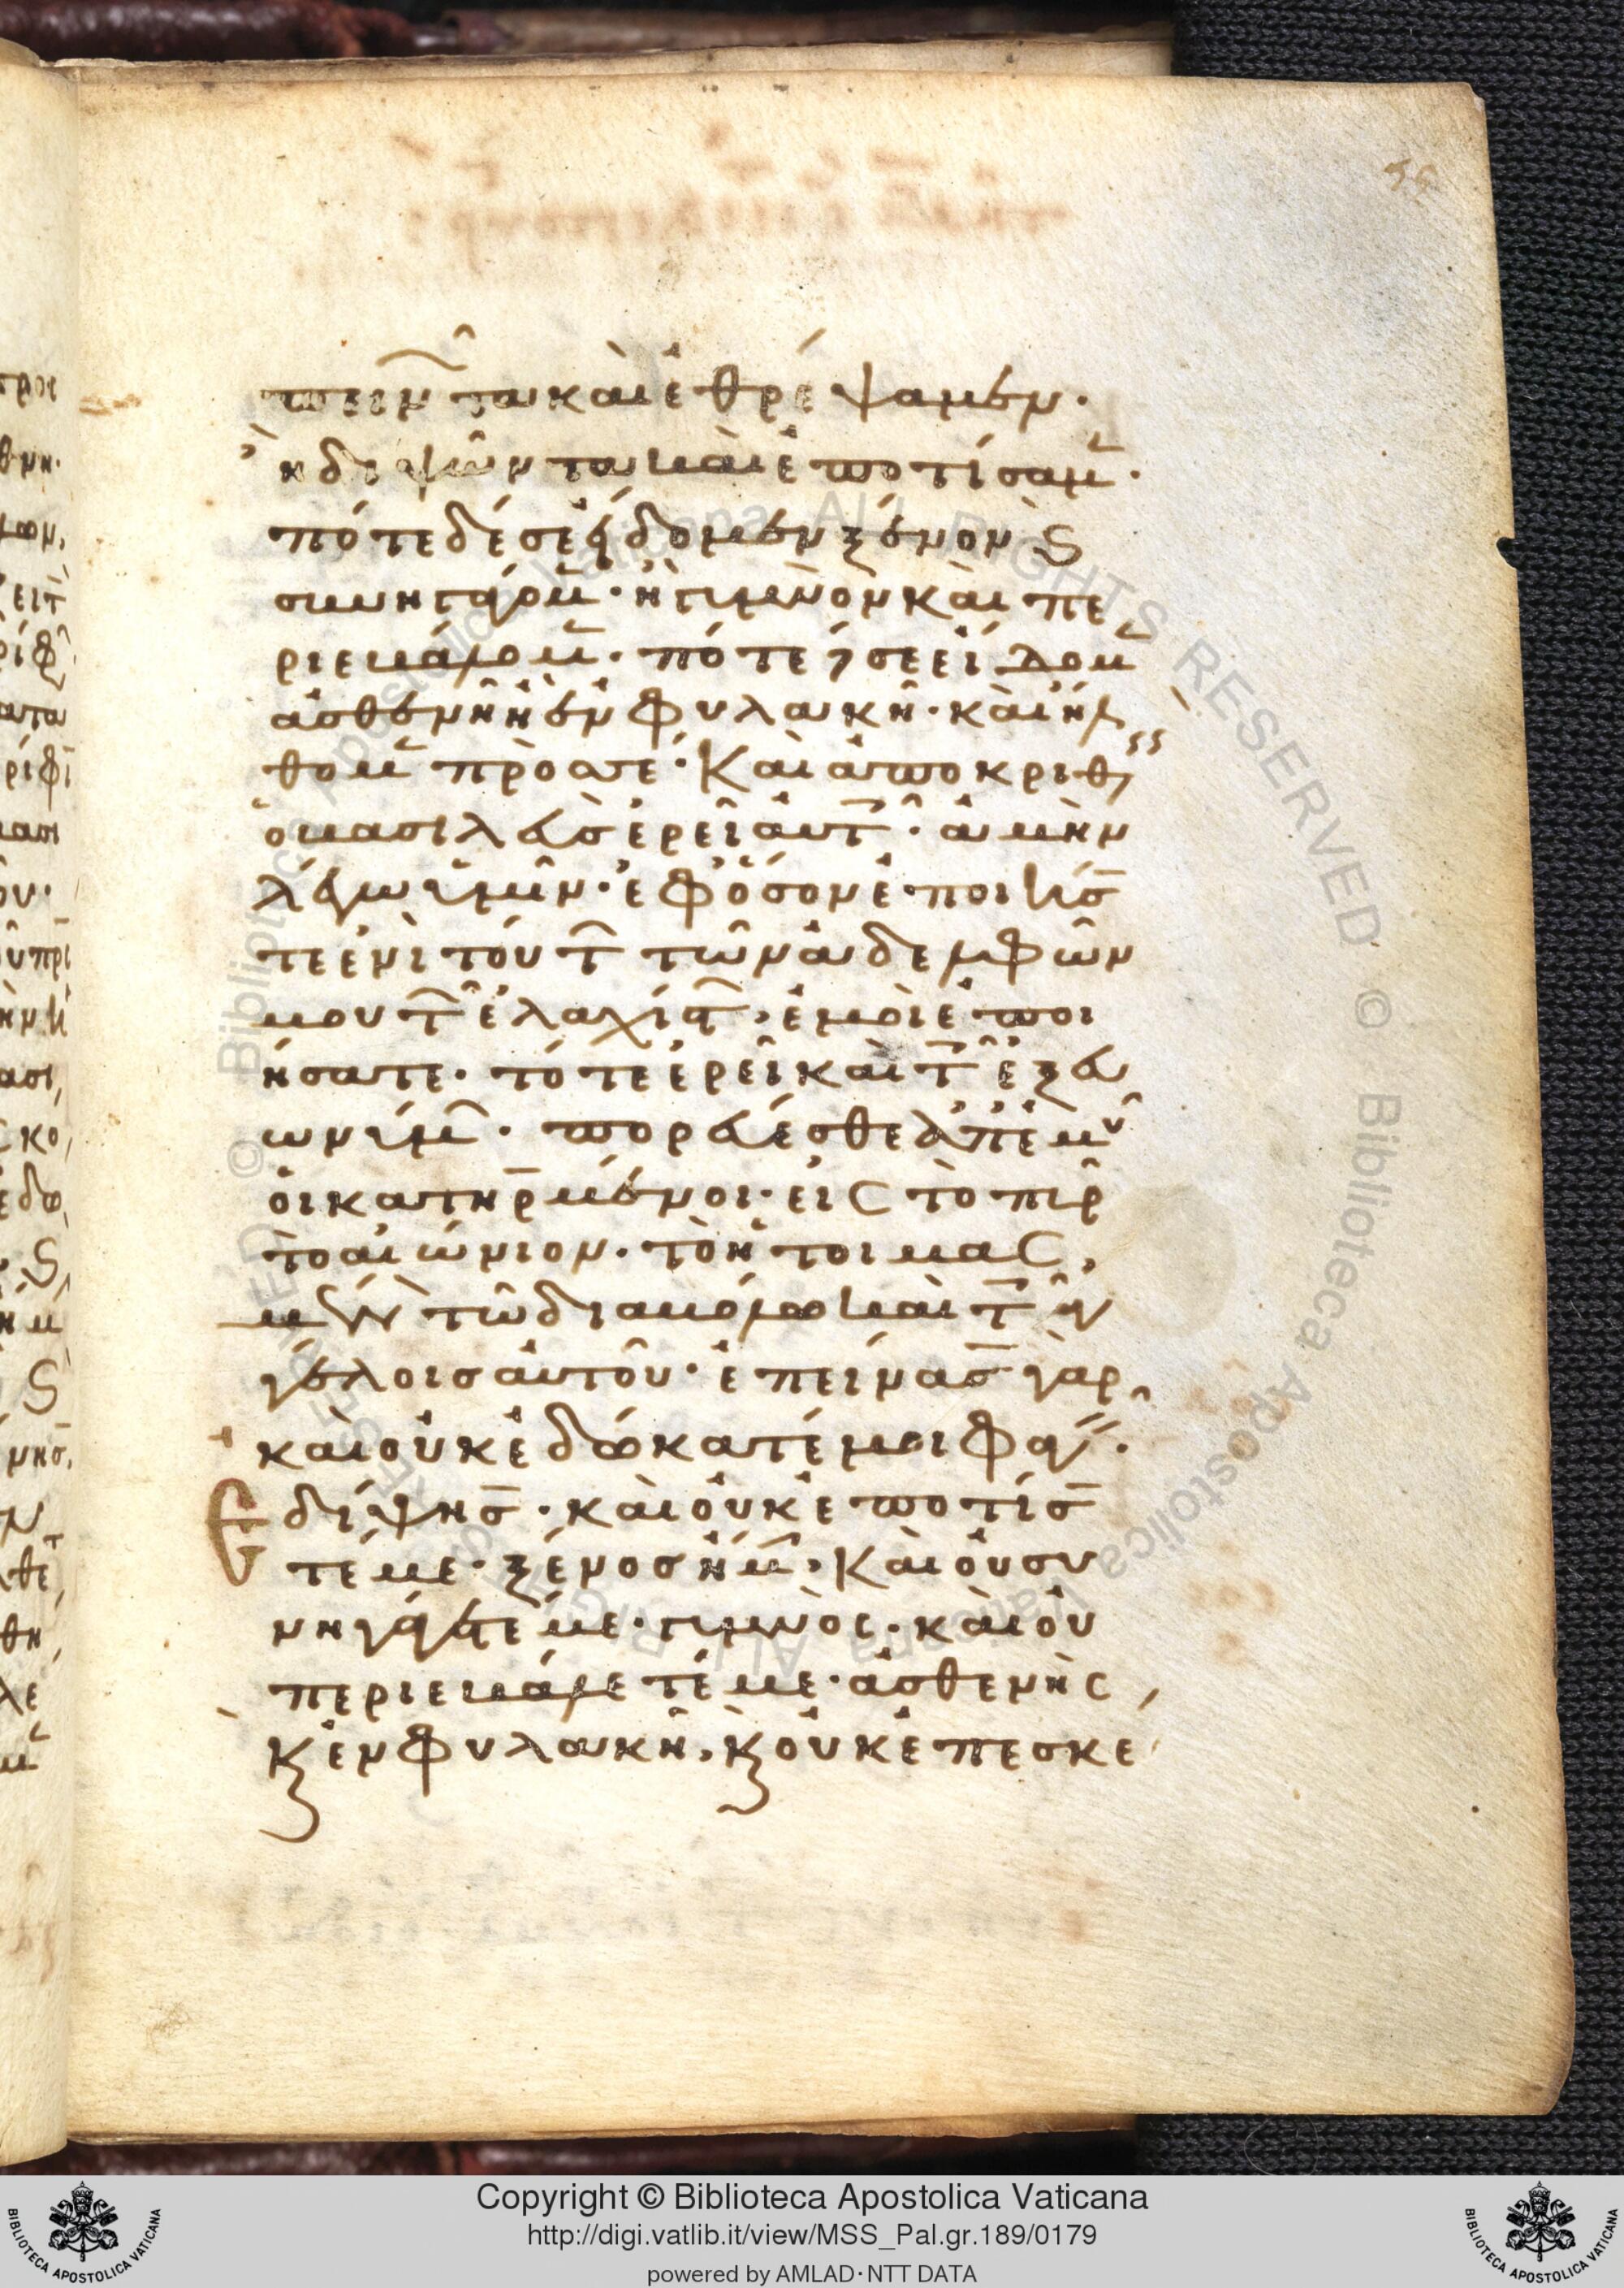 πειν͂τα καὶ ἐθρέψαμεν·
ἢ διψῶντα καὶ ἐποτίσαμ̅·
πότε δέ σε εἴδομεν ξένον ϛ
συνηγάγομ̅· ἢ γυμνὸν καὶ πε
ριεβάλομ̅· πότε ϛ σε εἴδομ̅
ἀσθενῆ ἢ ἐν φυλακῆ· καὶ ἤλ
θομ̅ πρὸσ σέ· Καὶ ἀποκριθ(εὶς)
ὁ βασιλεὺσ ἐρεῖ αὐτ͂· ἀμὴν
λέγω ὑμῖν· ἐφ' ὅσον ἐποιήσ̅
τε ἑνὶ τούτ͂ τῶν ἀδελφῶν
μου τ͂ ἐλαχίστ͂, ἐμοὶ ἐποι
ήσατε· τότε ἐρεῖ καὶ τ͂ ἐξ εὐ
ωνύμ͂· πορεύεσθε ἀπ' ἐμ(οῦ)
οἱ κατηρ̅μένοι· εἰς τὸ πῦρ
τὸ αἰώνιον· τὸ ἡτοιμασ,
μεν τῶ διαβόλω καὶ τ͂ ἀγ
γέλοισ αὐτοῦ· ἐπείνασ̅ γὰρ
καὶ οὐκ ἐδώκατέ μοι φαγ͂·
Εδίψησ̅· καὶ οὐκ ἐποτίσ̅
τέ με· ξένοσ ἤμ̅, Καὶ οὐ συ
νηγάγετέ με· γυμνὸς· καὶ οὐ
περιεβάλετέ με· ἀσθενὴς,
Κ̀ ἐν φυλακῆ, κ̀ οὐκ ἐπεσκέ
Copyright © Biblioteca Apostolica Vaticana
http://digi.vatlib.it/view/MSS_Pal.gr.189/0179
powered by AMLAD·NTT DATA
BIBLIOTECA APOSTOLICA VATICANA
BIBLIOTECA APOSTOLICA VATICANA